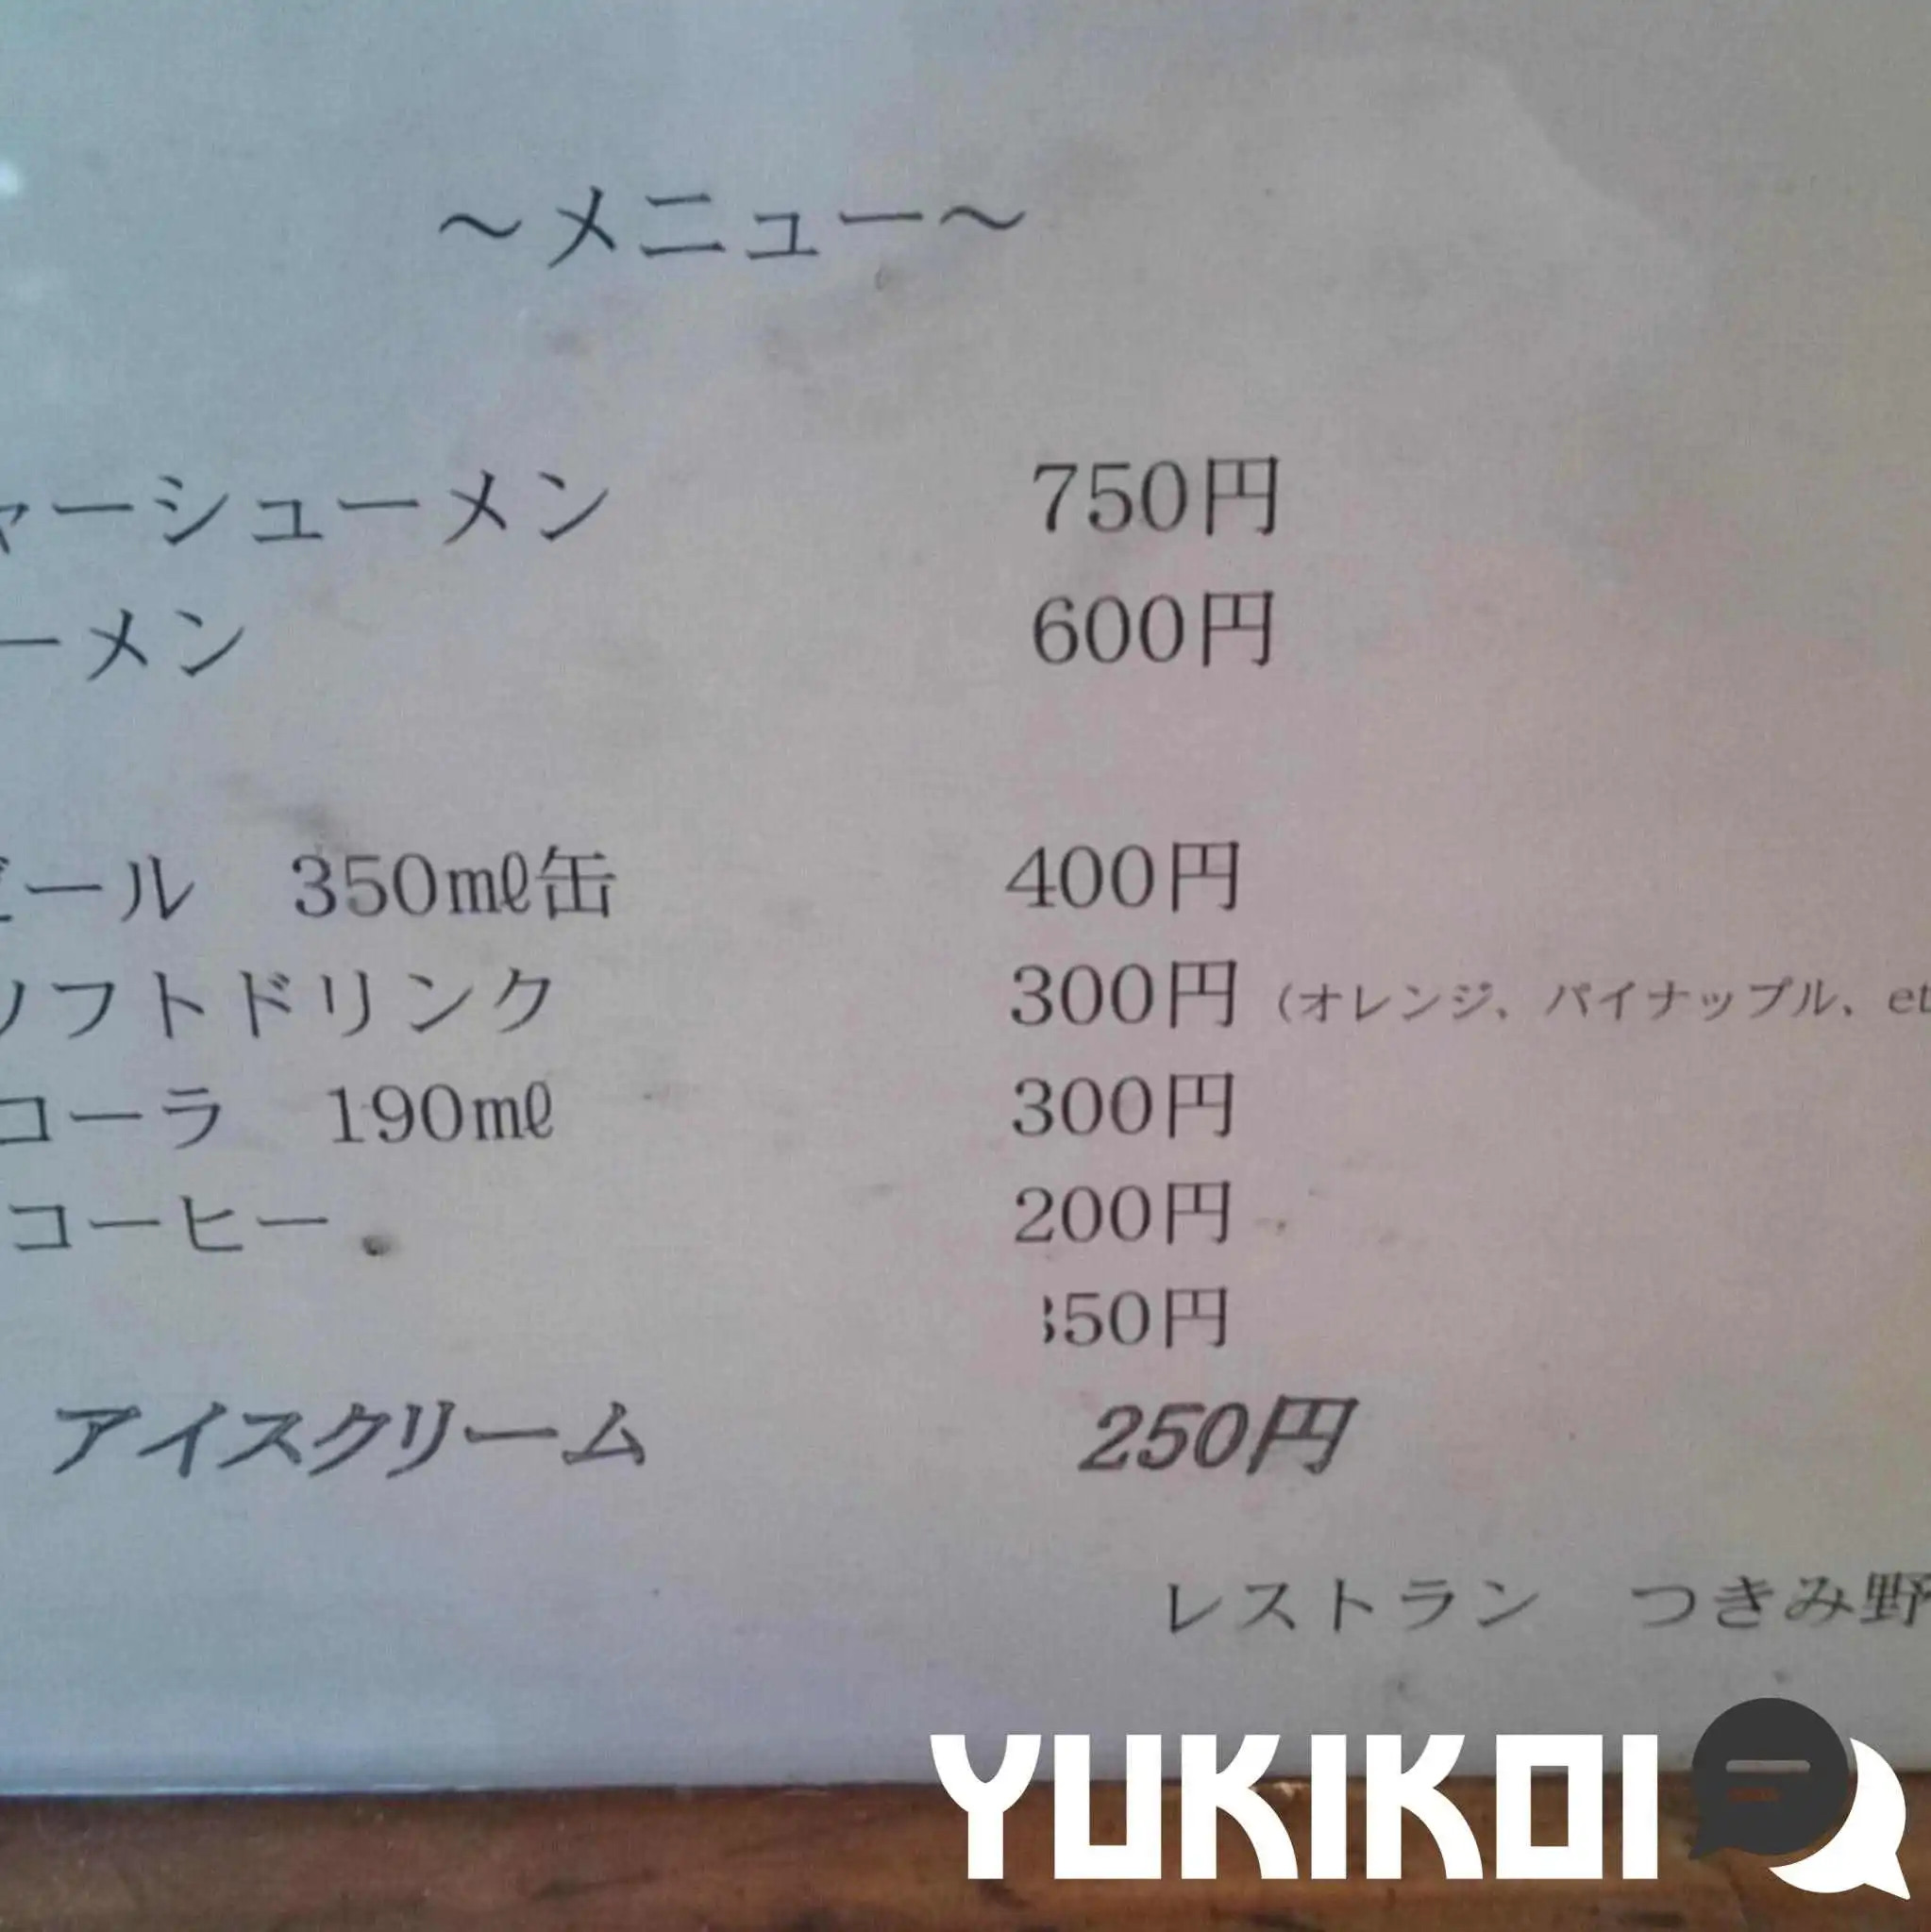 ～メニュー～
ャーシューメン 750円
ーメン 600円
ビール 350㎖缶 400円
ソフトドリンク 300円 (オレンジ、パイナップル、et
コーラ 190㎖ 300円
コーヒー 200円
50円
アイスクリーム 250円
レストラン つきみ野
YUKIKOI